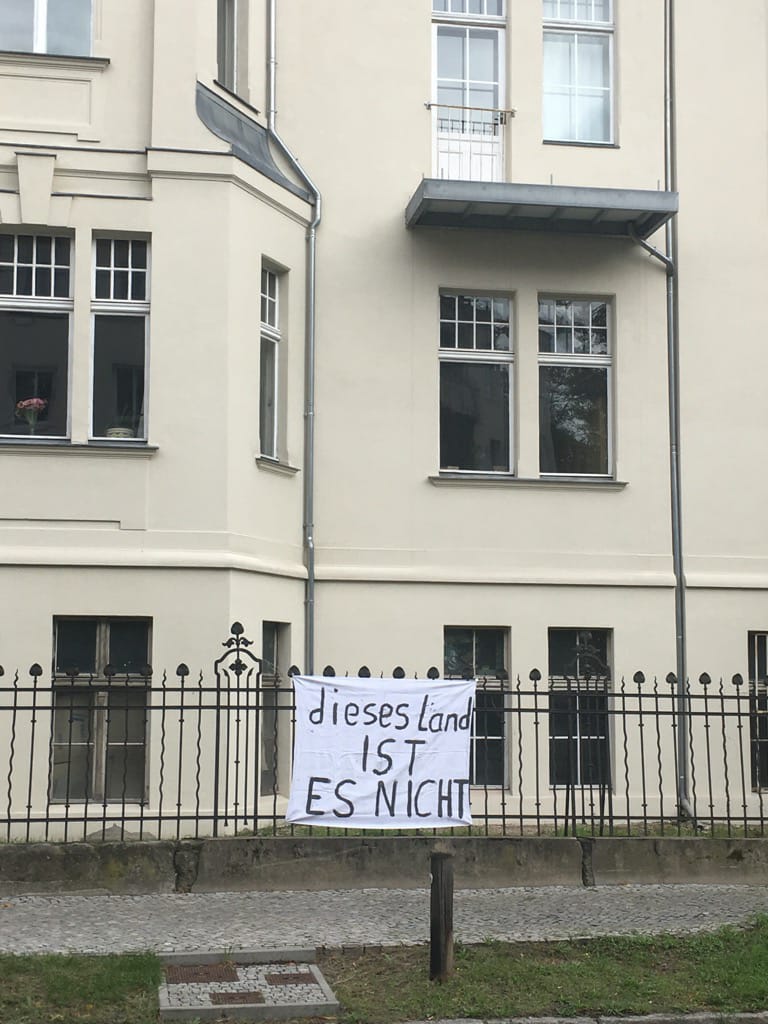 dieses Land
IST
ES NICHT